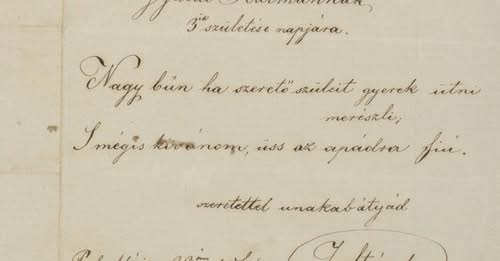 Kálmánnak
3ik születése napjára.
Nagy bűn ha szerető szüleit gyerek ütni
merészli;
S mégis kivánom, üss az apádra fiú.
szeretettel unakabátyád